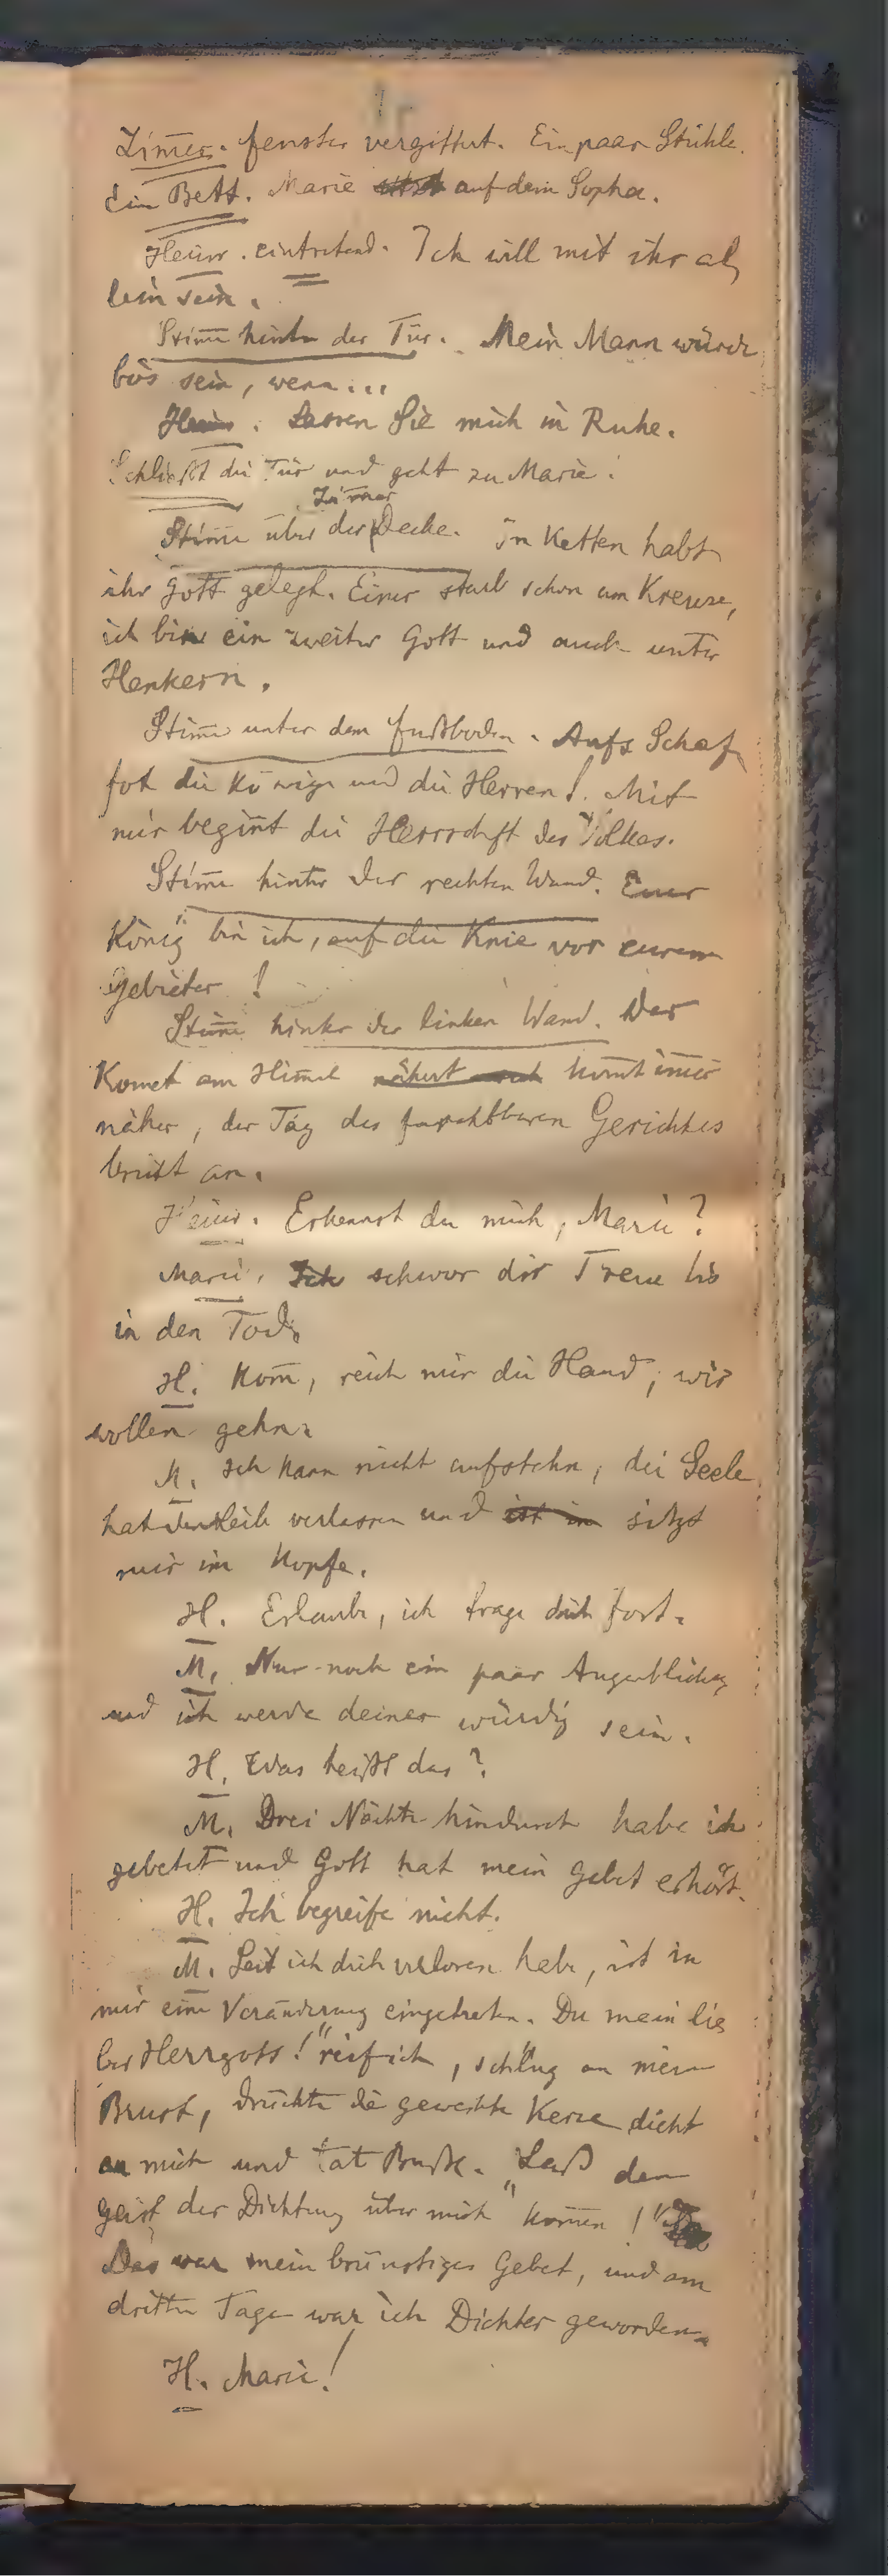 Zim̅er. Fenster vergittert. Ein paar Stühle.
Ein Bett. Marie sitzt auf dem Sopha.
Heinr. eintretend. Ich will mit ihr al-
lein sein.
Stim̅e hinter der Tür. Mein Mann würde
bös sein, wenn...
Heinr. Lassen Sie mich in Ruhe.
Schließt die Tür und geht zu Marie.
Zim̅er
Stim̅e über der Decke. In Ketten habt
ihr Gott gelegt. Einer starb schon am Kreuze,
ich bin ein zweiter Gott und auch unter
Henkern.
Stim̅e unter dem Fußboden. Aufs Schaf-
fot die Könige und die Herren! Mit
mir begin̅t die Herrschaft des Volkes.
Stim̅e hinter der rechten Wand. Euer
König bin ich, auf die Knie vor eurem
Gebieter!
Stim̅e hinter der linken Wand. Der
Komet am Him̅el nähert sich kom̅t im̅er
näher, der Tag des furchtbaren Gerichtes
bricht an.
Heinr. Erkennst du mich, Marie?
Marie. Ich schwor dir Treue bis
in den Tod.
H. Kom̅, reich mir die Hand, wir
wollen gehn.
M. Ich kann nicht aufstehn, die Seele
hat den Leib verlassen und ist im sitzt
mir im Kopfe.
H. Erlaube, ich trage dich fort.
M. Nur noch ein paar Augenblicke,
und ich werde deiner würdig sein.
H. Was heißt das?
M. Drei Nächte hindurch habe ich
gebetet und Gott hat mein Gebet erhört.
H. Ich begreife nicht.
M. Seit ich dich verloren habe, ist in
mir eine Veränderung eingetreten. Du mein lie-
ber Herrgott!" rief ich, schlug an meine
Brust, drückte die geweihte Kerze dicht
an mich und tat Buße. „Laß den
Geist der Dichtung über mich kom̅en!"
Das war mein brünstiges Gebet, und am
dritten Tage war ich Dichter geworden.
H. Marie!